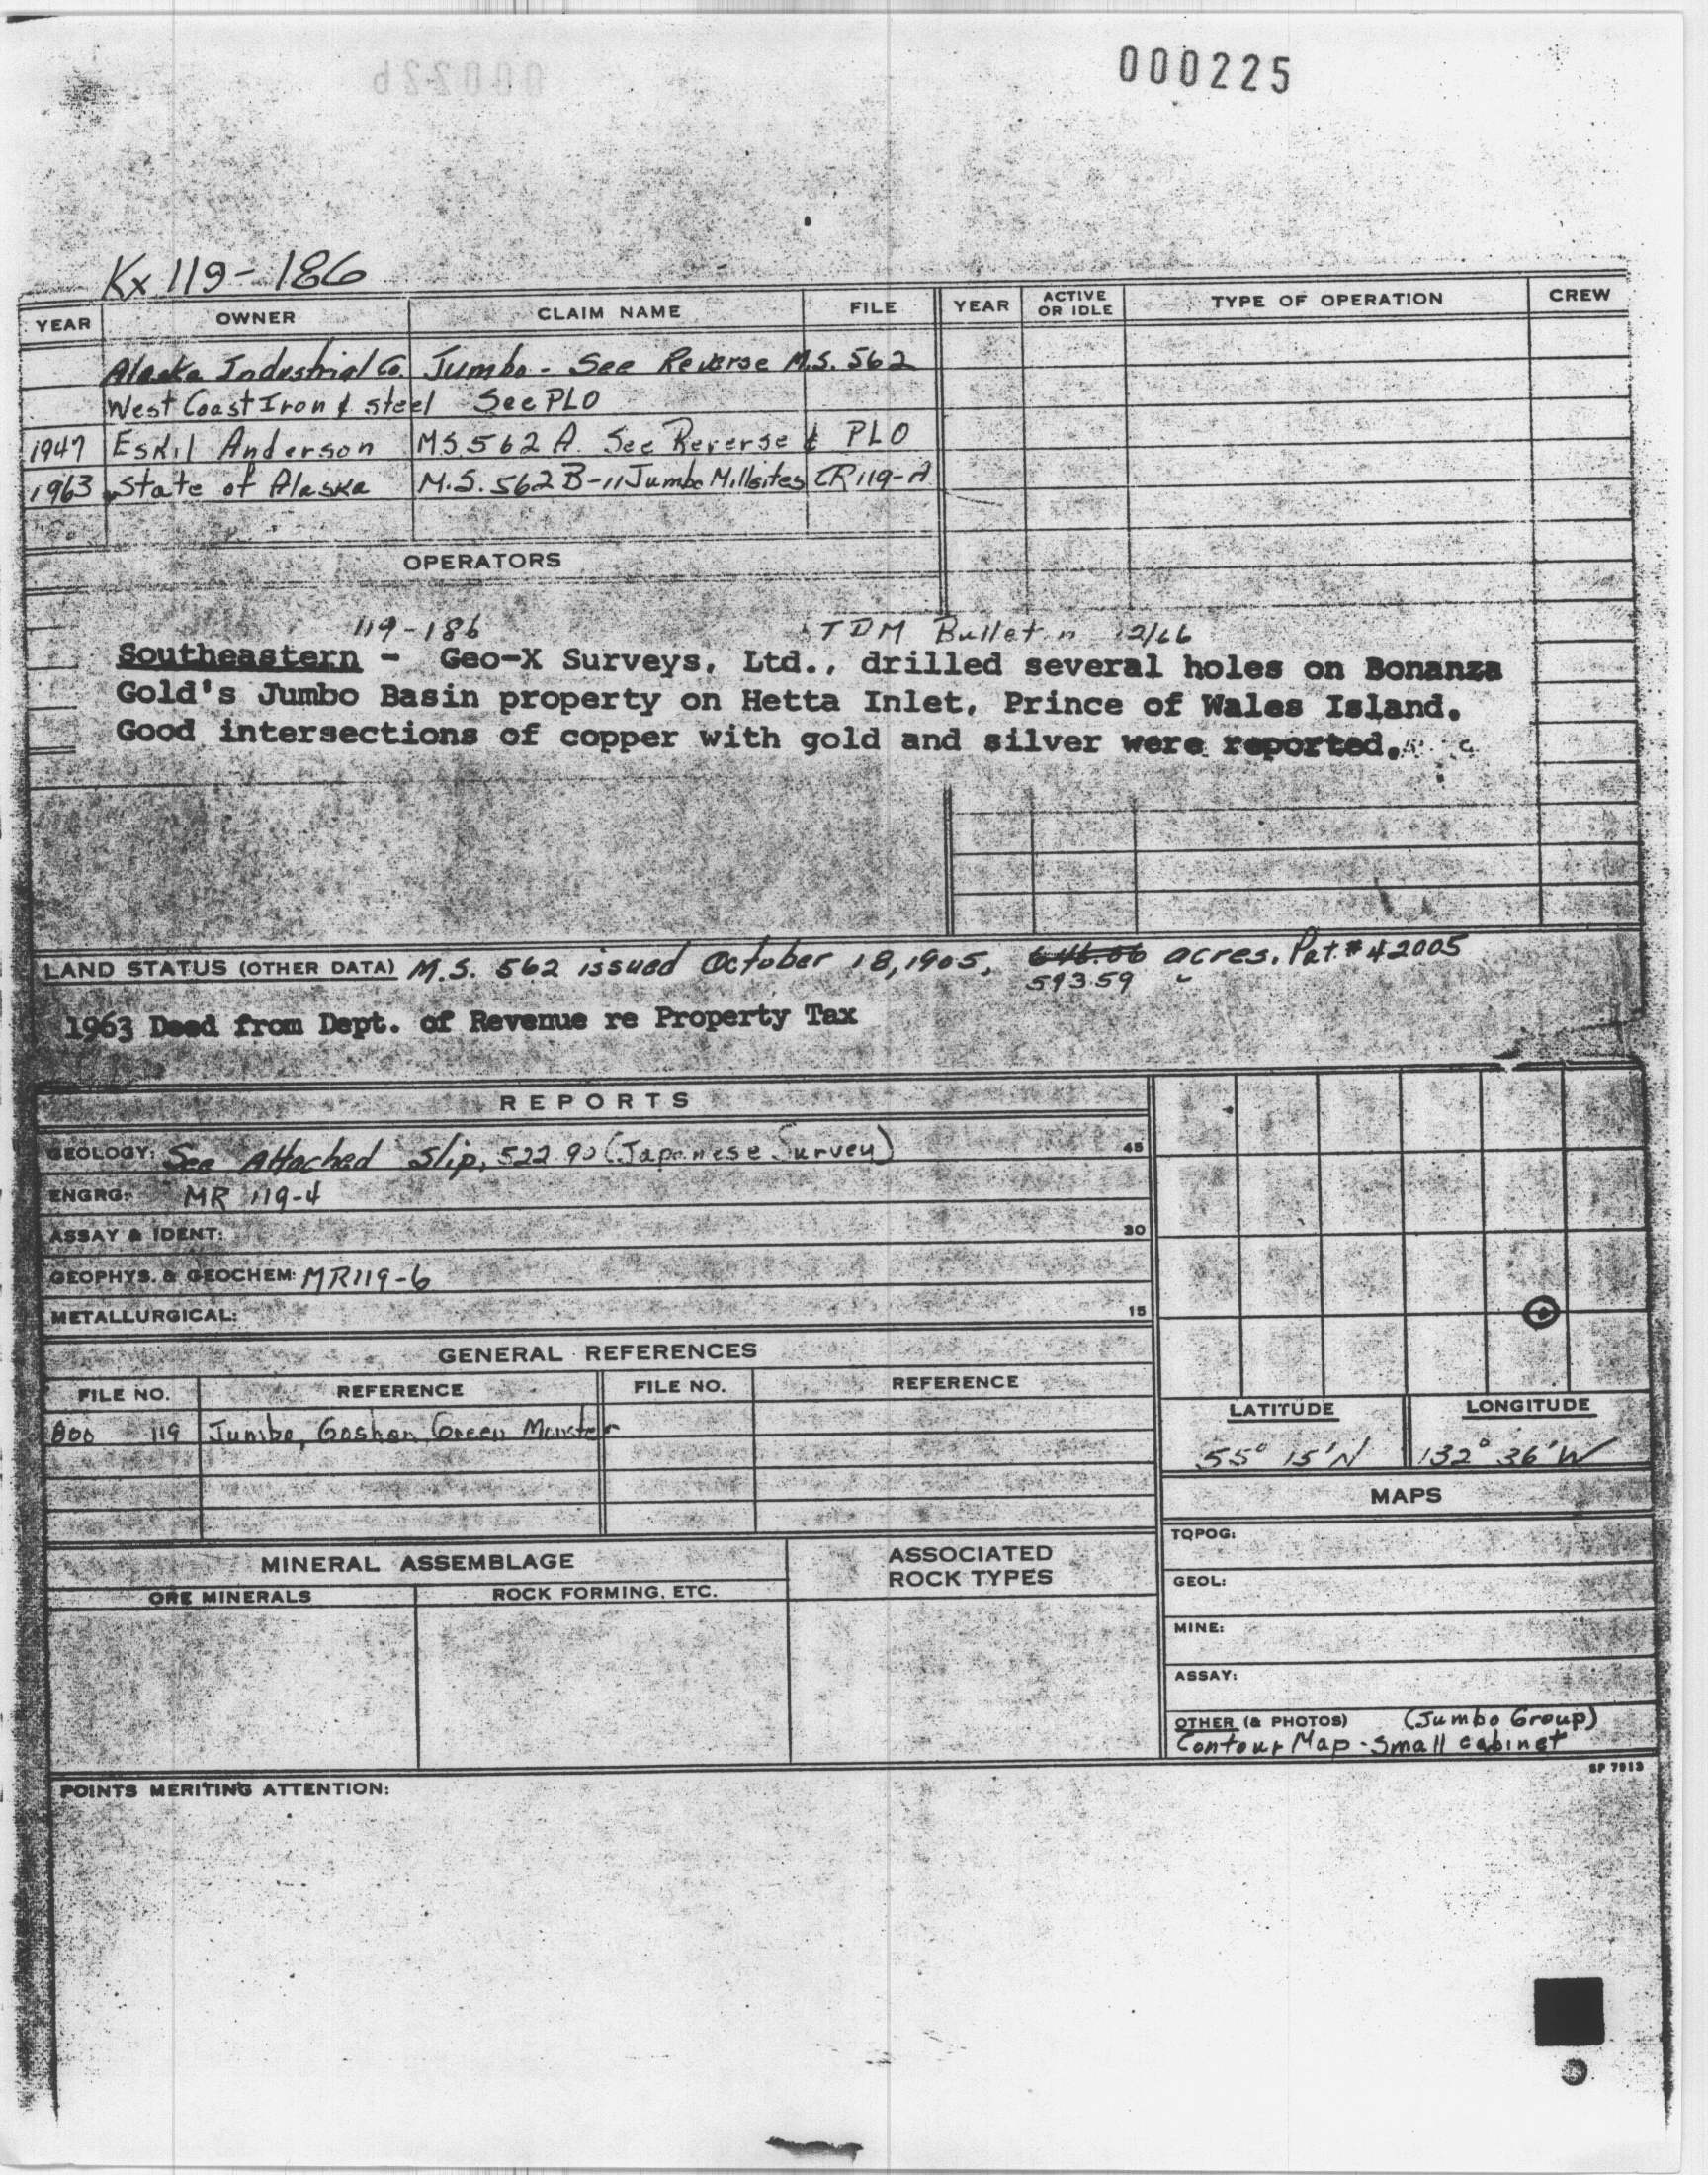 000225
Kx 119-186
YEAR OWNER CLAIM NAME FILE YEAR ACTIVE OR IDLE TYPE OF OPERATION CREW
Alaska Industrial Co. Jumbo - See Reverse M.S. 562
West Coast Iron & Steel See PLO
1947 Eskil Anderson MS 562 A. See Reverse & PLO
1963 State of Alaska M.S. 562 B-11 Jumbo Millsites CR 119-A
OPERATORS
119-186 TDM Bulletin 12/66
Southeastern - Geo-X Surveys, Ltd., drilled several holes on Bonanza
Gold's Jumbo Basin property on Hetta Inlet, Prince of Wales Island.
Good intersections of copper with gold and silver were reported.
LAND STATUS (OTHER DATA) M.S. 562 issued October 18, 1905, acres. Pat. # 42005
593.59
1963 Deed from Dept. of Revenue re Property Tax
REPORTS
GEOLOGY: See Attached Slip, 522.90 (Japanese Survey) 45
ENGRG: MR 119-4
ASSAY & IDENT: 30
GEOPHYS. & GEOCHEM: MR119-6
METALLURGICAL: 15
GENERAL REFERENCES
FILE NO. REFERENCE FILE NO. REFERENCE
119 Jumbo, Goshen, Green Monster
LATITUDE LONGITUDE
55° 15' N 132° 36' W
MAPS
TOPOG:
GEOL:
MINE:
ASSAY:
OTHER (& PHOTOS) (Jumbo Group)
Contour Map - Small cabinet
MINERAL ASSEMBLAGE ASSOCIATED ROCK TYPES
ORE MINERALS ROCK FORMING, ETC.
SP 7913
POINTS MERITING ATTENTION: